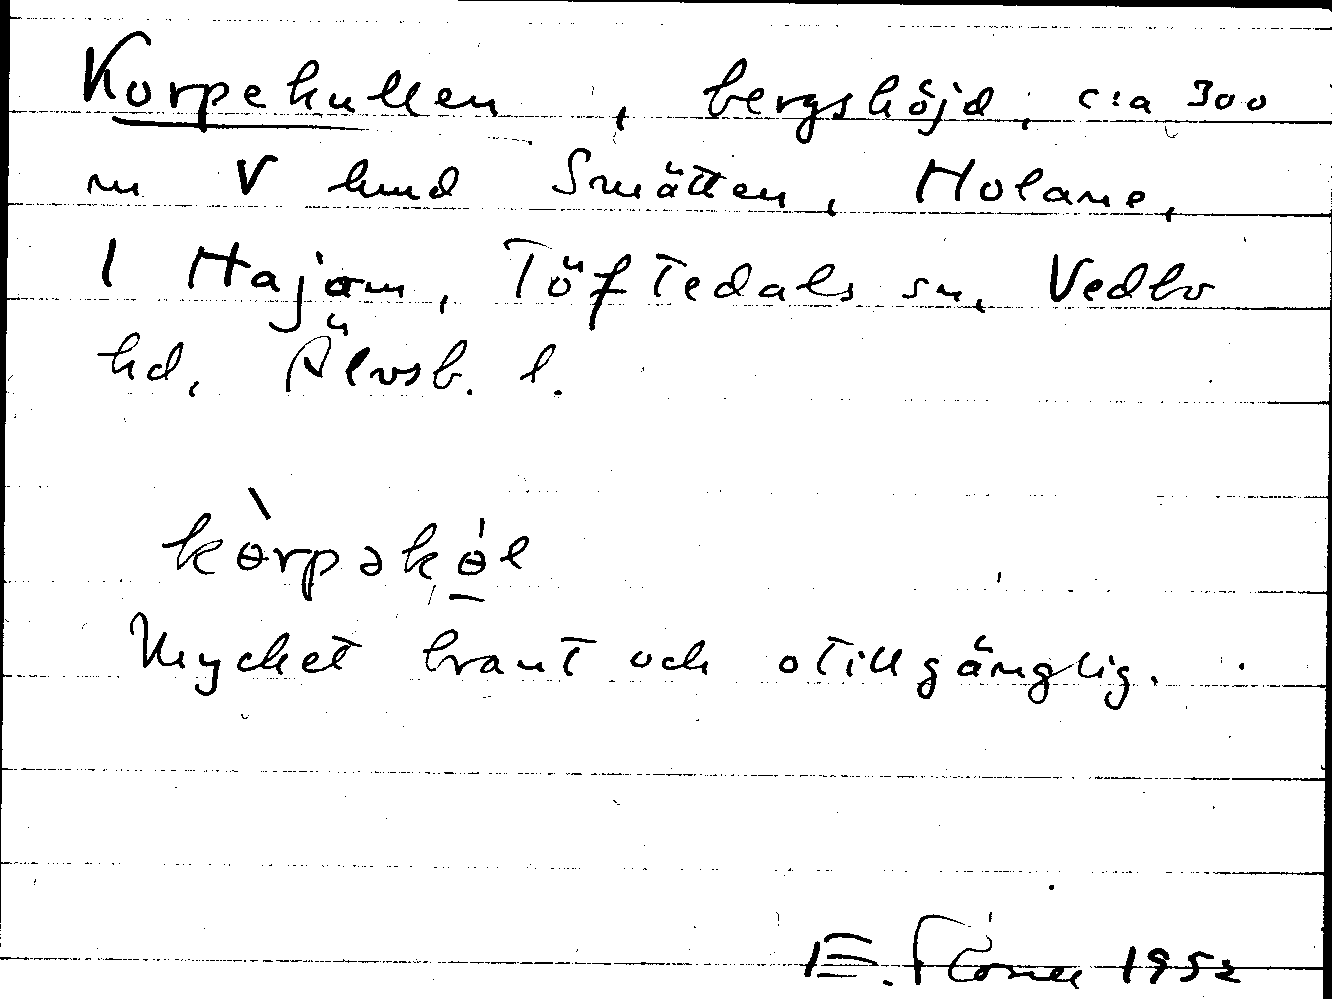 Korpekullen, bergshöjd, c:a 300
m V lund Smätten, Holane,
1 Hajom, Töftedals sn, Vedbo
hd, Älvsb. l.
kɵ̀rpəkɵ̀l
Mycket brant och otillgänglig.
E. 1952